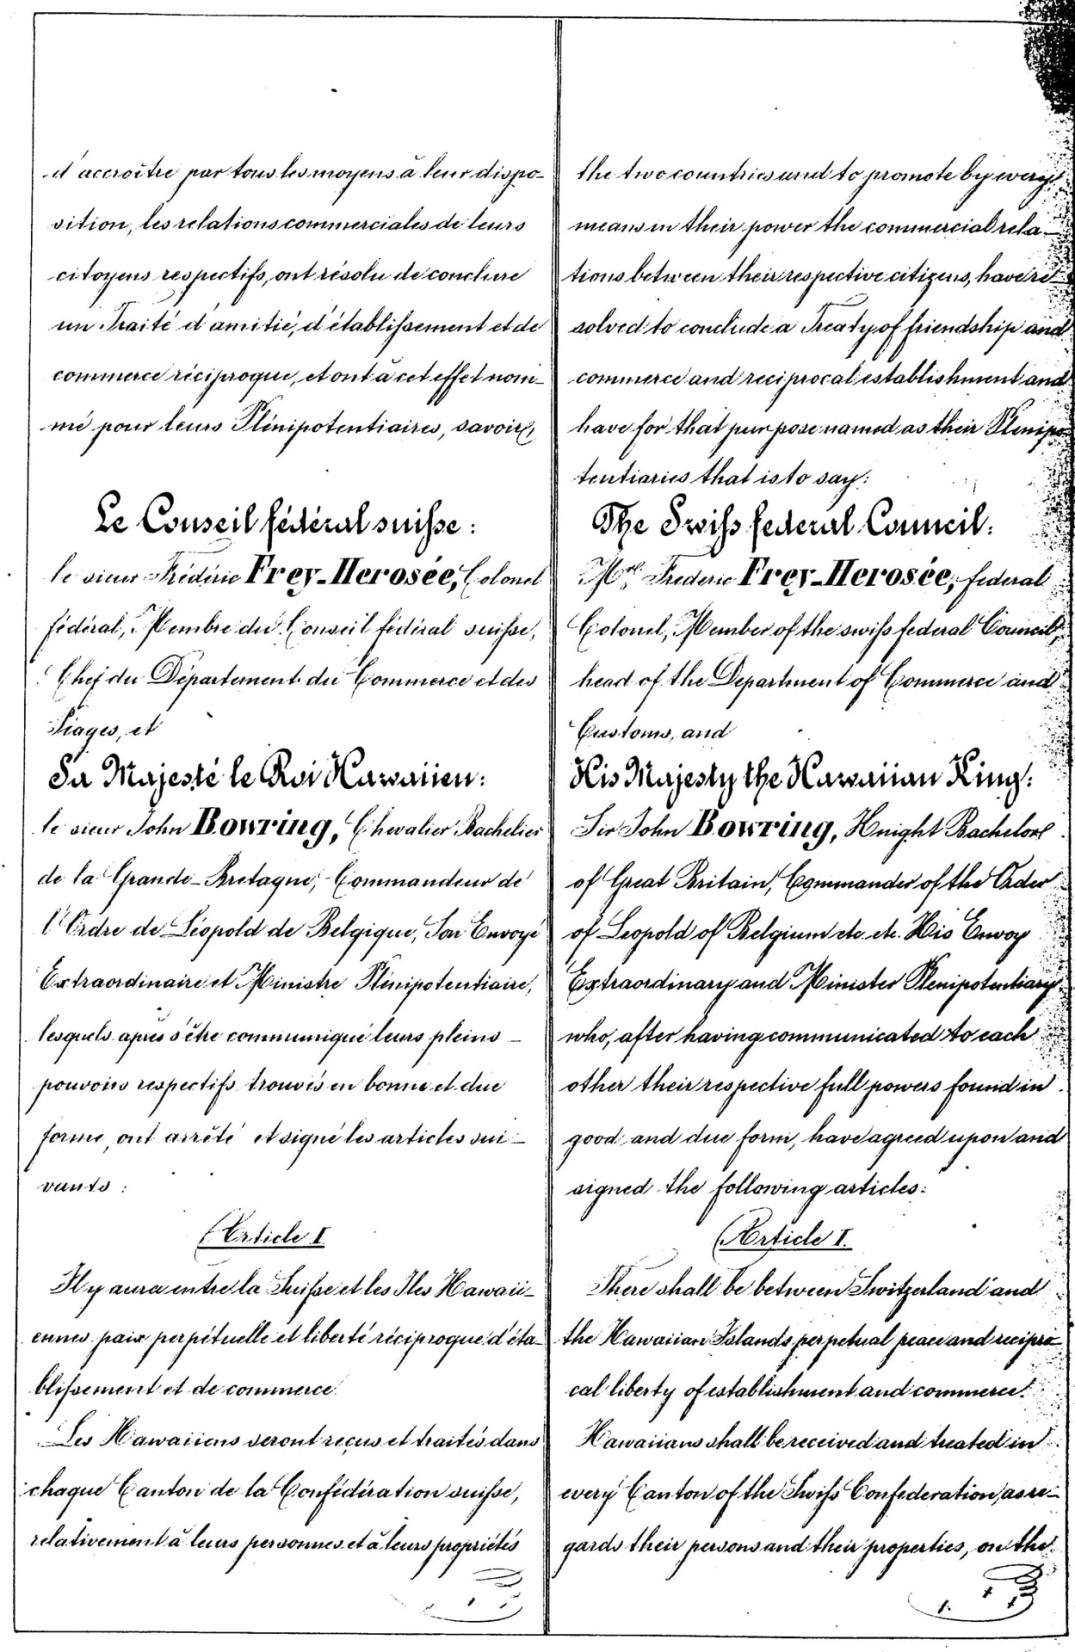 d'accroître par tous les moyens à leur dispo-
sition, les relations commerciales de leurs
citoyens respectifs, ont résolu de conclure
un Traité d'amitié, d'établissement et de
commerce réciproque, et ont à cet effet nom-
mé pour leurs Plénipotentiaires, savoir,
Le Conseil fédéral suisse :
le sieur Frédéric Frey-Herosée, Colonel
fédéral, Membre du Conseil fédéral suisse,
Chef du Département du Commerce et des
Péages, et
Sa Majesté le Roi Hawaiien :
le sieur John Bowring, Chevalier Bachelier
de la Grande-Bretagne, Commandeur de
l'Ordre de Léopold de Belgique, Son Envoyé
Extraordinaire et Ministre Plénipotentiaire,
lesquels après s'être communiqué leurs pleins-
pouvoirs respectifs trouvés en bonne et due
forme, ont arrêté et signé les articles sui-
vants :
Article I
Il y aura entre la Suisse et les Iles Hawaii-
ennes paix perpétuelle et liberté réciproque d'éta-
blissement et de commerce
Les Hawaiiens seront reçus et traités dans
chaque Canton de la Confédération suisse,
relativement à leurs personnes et à leurs propriétés
the two countries and to promote by every
means in their power the commercial rela-
tions between their respective citizens, have re-
solved to conclude a Treaty of friendship and
commerce and reciprocal establishment and
have for that purpose named as their Plenipo-
tentiaries that is to say:
The Swiss federal Council:
Mr. Frederic Frey-Herosée, federal
Colonel, Member of the swiss federal Council,
head of the Department of Commerce and
Customs, and
His Majesty the Hawaiian King:
Sir John Bowring, Knight Bachelor
of Great Britain, Commander of the Order
of Leopold of Belgium etc. etc. His Envoy
Extraordinary and Minister Plenipotentiary
who, after having communicated to each
other their respective full powers found in
good and due form, have agreed upon and
signed the following articles:
Article I.
There shall be between Switzerland and
the Hawaiian Islands perpetual peace and recipro-
cal liberty of establishment and commerce.
Hawaiians shall be received and treated in
every Canton of the Swiss Confederation, as re-
gards their persons and their properties, on the